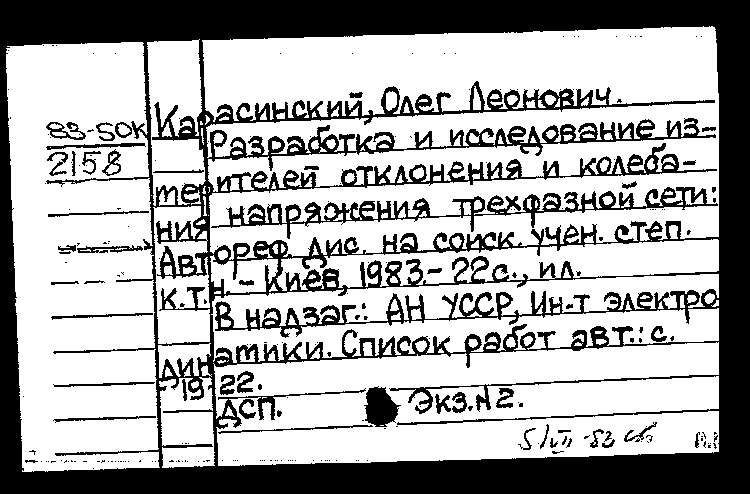 83-50К Карасинский, Олег Леонович.
2158 Разработка и исследование из-
терителей отклонения и колеба-
ния напряжения трехфазной сети:
Автореф. дис. на соиск. учен. степ.
к.т.н. - Киев, 1983.- 22 с., ил.
В надзаг.: АН УССР, Ин-т электро
динатики. Список работ авт.: с.
19-22.
ДСП. Экз. N 2.